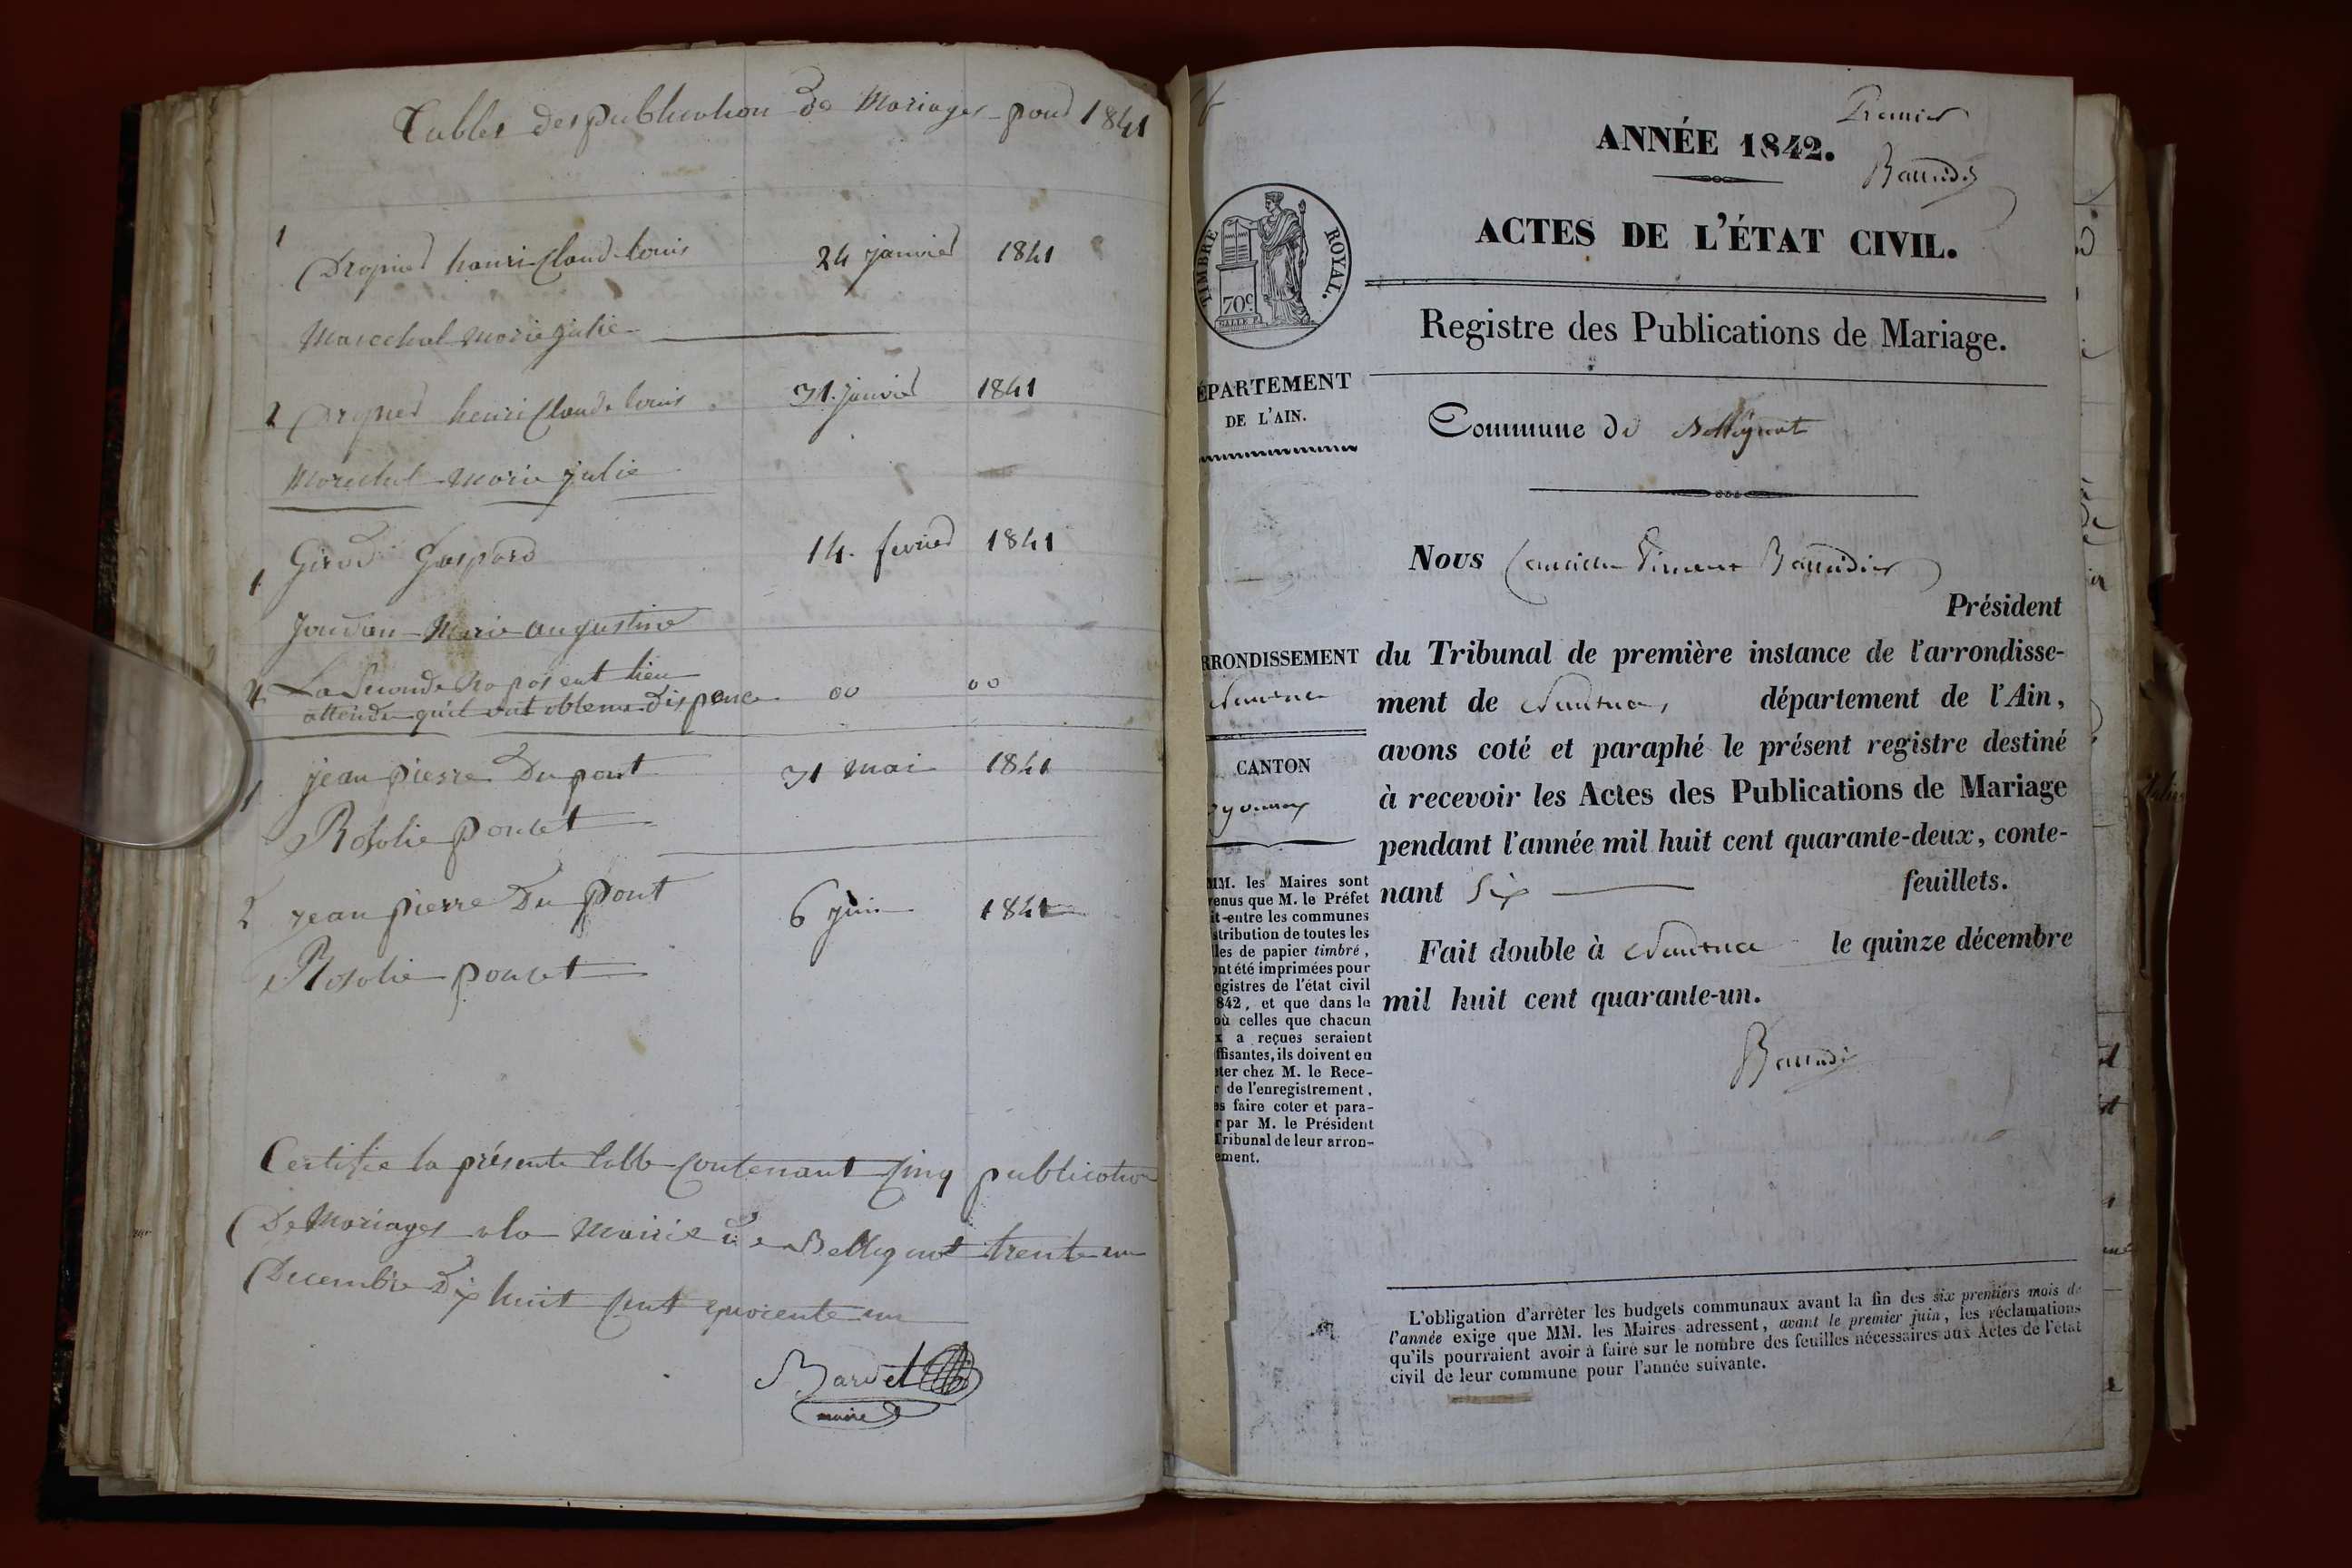 Tables des publication de Mariages pour 1841
1
henri Claude louis 24 janvier 1841
Marechal Marie julie
2 henri Claude louis 31 janvier 1841
Marechal Marie julie
1 Girod Gaspard 14 fevrier 1841
Jourdan Marie augustine
2 La Seconde lieu
attendu qu'il ont obtenu dispence 00 00
1 jean pierre Dupont 31 mai 1841
Rosalie poncet
2 jean pierre Du pont 6 juin 1841
Rosalie poncet
Certifie la présente table Contenant Cinq publication
De Mariages a la Mairie de Bellignat trente un
Decembre Dix huit Cent quarente un
Bardet
maire
Premier
ANNÉE 1842.
ACTES DE L'ÉTAT CIVIL.
TIMBRE ROYAL.
70c
Registre des Publications de Mariage.
ÉPARTEMENT
DE L'AIN.
Commune de Bellignat
Nous
Président
RRONDISSEMENT
Nantua
CANTON
oyonnax
du Tribunal de première instance de l'arrondisse-
ment de Nantua, département de l'Ain,
avons coté et paraphé le présent registre destiné
à recevoir les Actes des Publications de Mariage
pendant l'année mil huit cent quarante-deux, conte-
nant Six feuillets.
Fait double à Nantua le quinze décembre
mil huit cent quarante-un.
MM. les Maires sont
venus que M. le Préfet
it entre les communes
stribution de toutes les
les de papier timbré,
ont été imprimées pour
egistres de l'état civil
842, et que dans le
où celles que chacun
x a reçues seraient
ffisantes, ils doivent en
eter chez M. le Rece-
r de l'enregistrement,
es faire coter et para-
r par M. le Président
Tribunal de leur arron-
ement.
L'obligation d'arrêter les budgets communaux avant la fin des six premiers mois de
l'année exige que MM. les Maires adressent, avant le premier juin, les réclamations
qu'ils pourraient avoir à faire sur le nombre des feuilles nécessaires aux Actes de l'état
civil de leur commune pour l'année suivante.